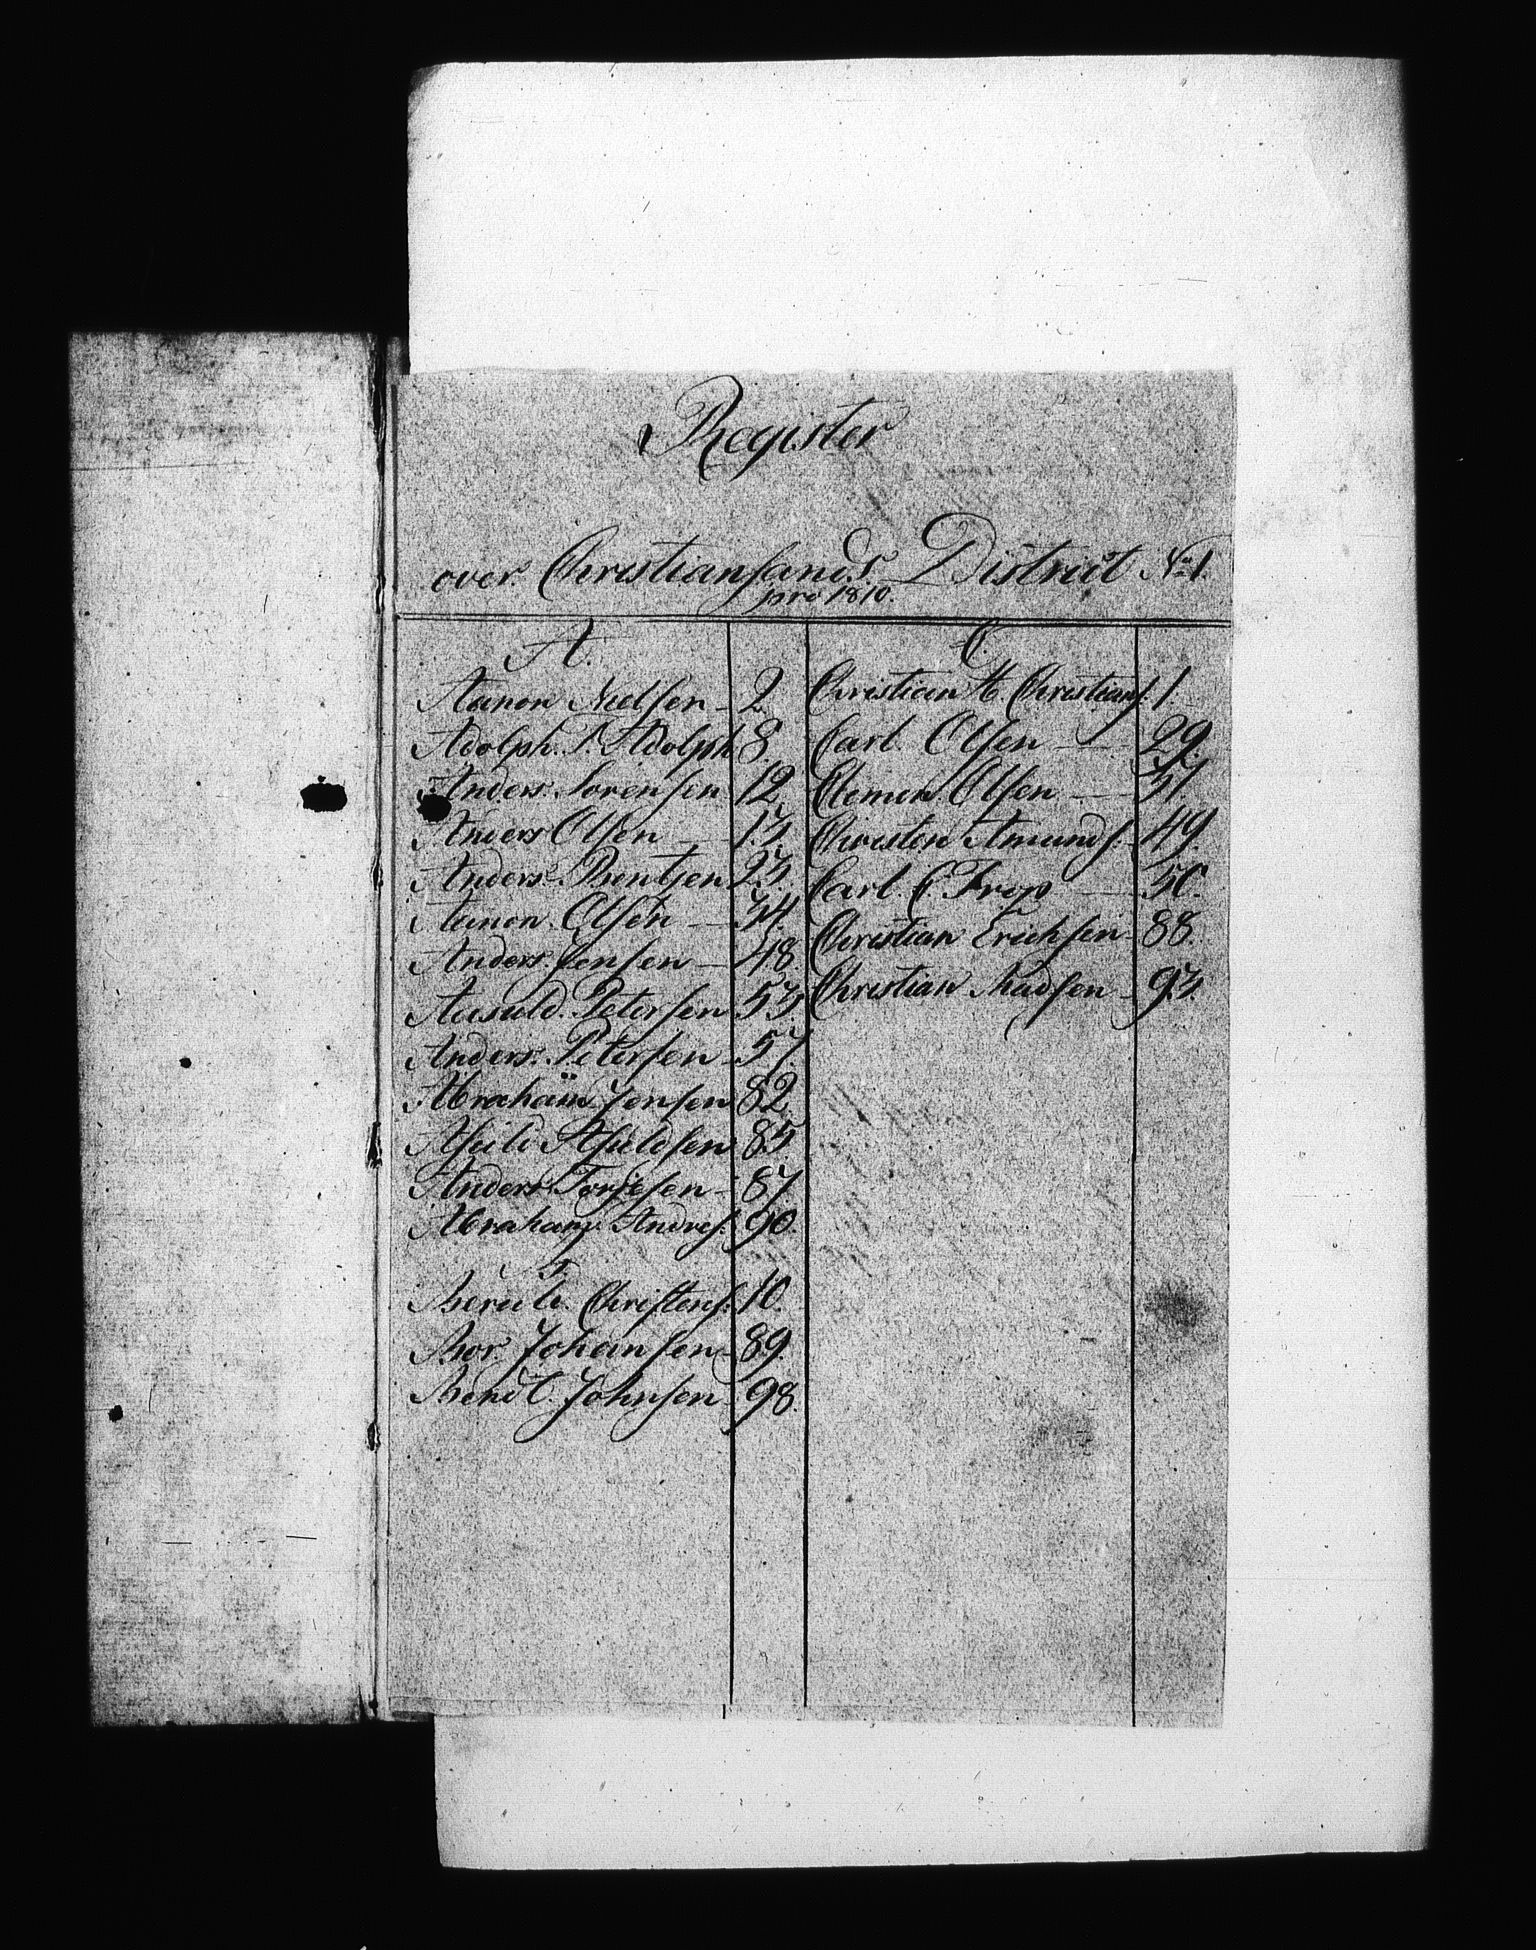 Register
over Christiansands District No 1.
pro 1810.
A.
Aanon Nielsen - 2.
Adolph. T. Adolph 8.
Anders Sørensen 12.
Anders Olsen - 13.
Anders Bentsen 23.
Aanon Olsen - 34.
Anders Jensen - 48.
Aasuld Petersen 53.
Anders Petersen 57.
Abraham Jensen 82.
Asuld Asuldsen 85.
Anders Torjesen - 87
Abraham Andres: 90.
B.
Beruld. Christens: 10.
Boy Johansen - 89.
Bendt. Johnsen 98.
C.
Christian H Christians: 1.
Carl Olsen - 29.
Clemen Olsen - 37
Christen Amunds: 49.
Carl C. - 50.
Christian Erichsen - 88.
Christian Madsen - 93.